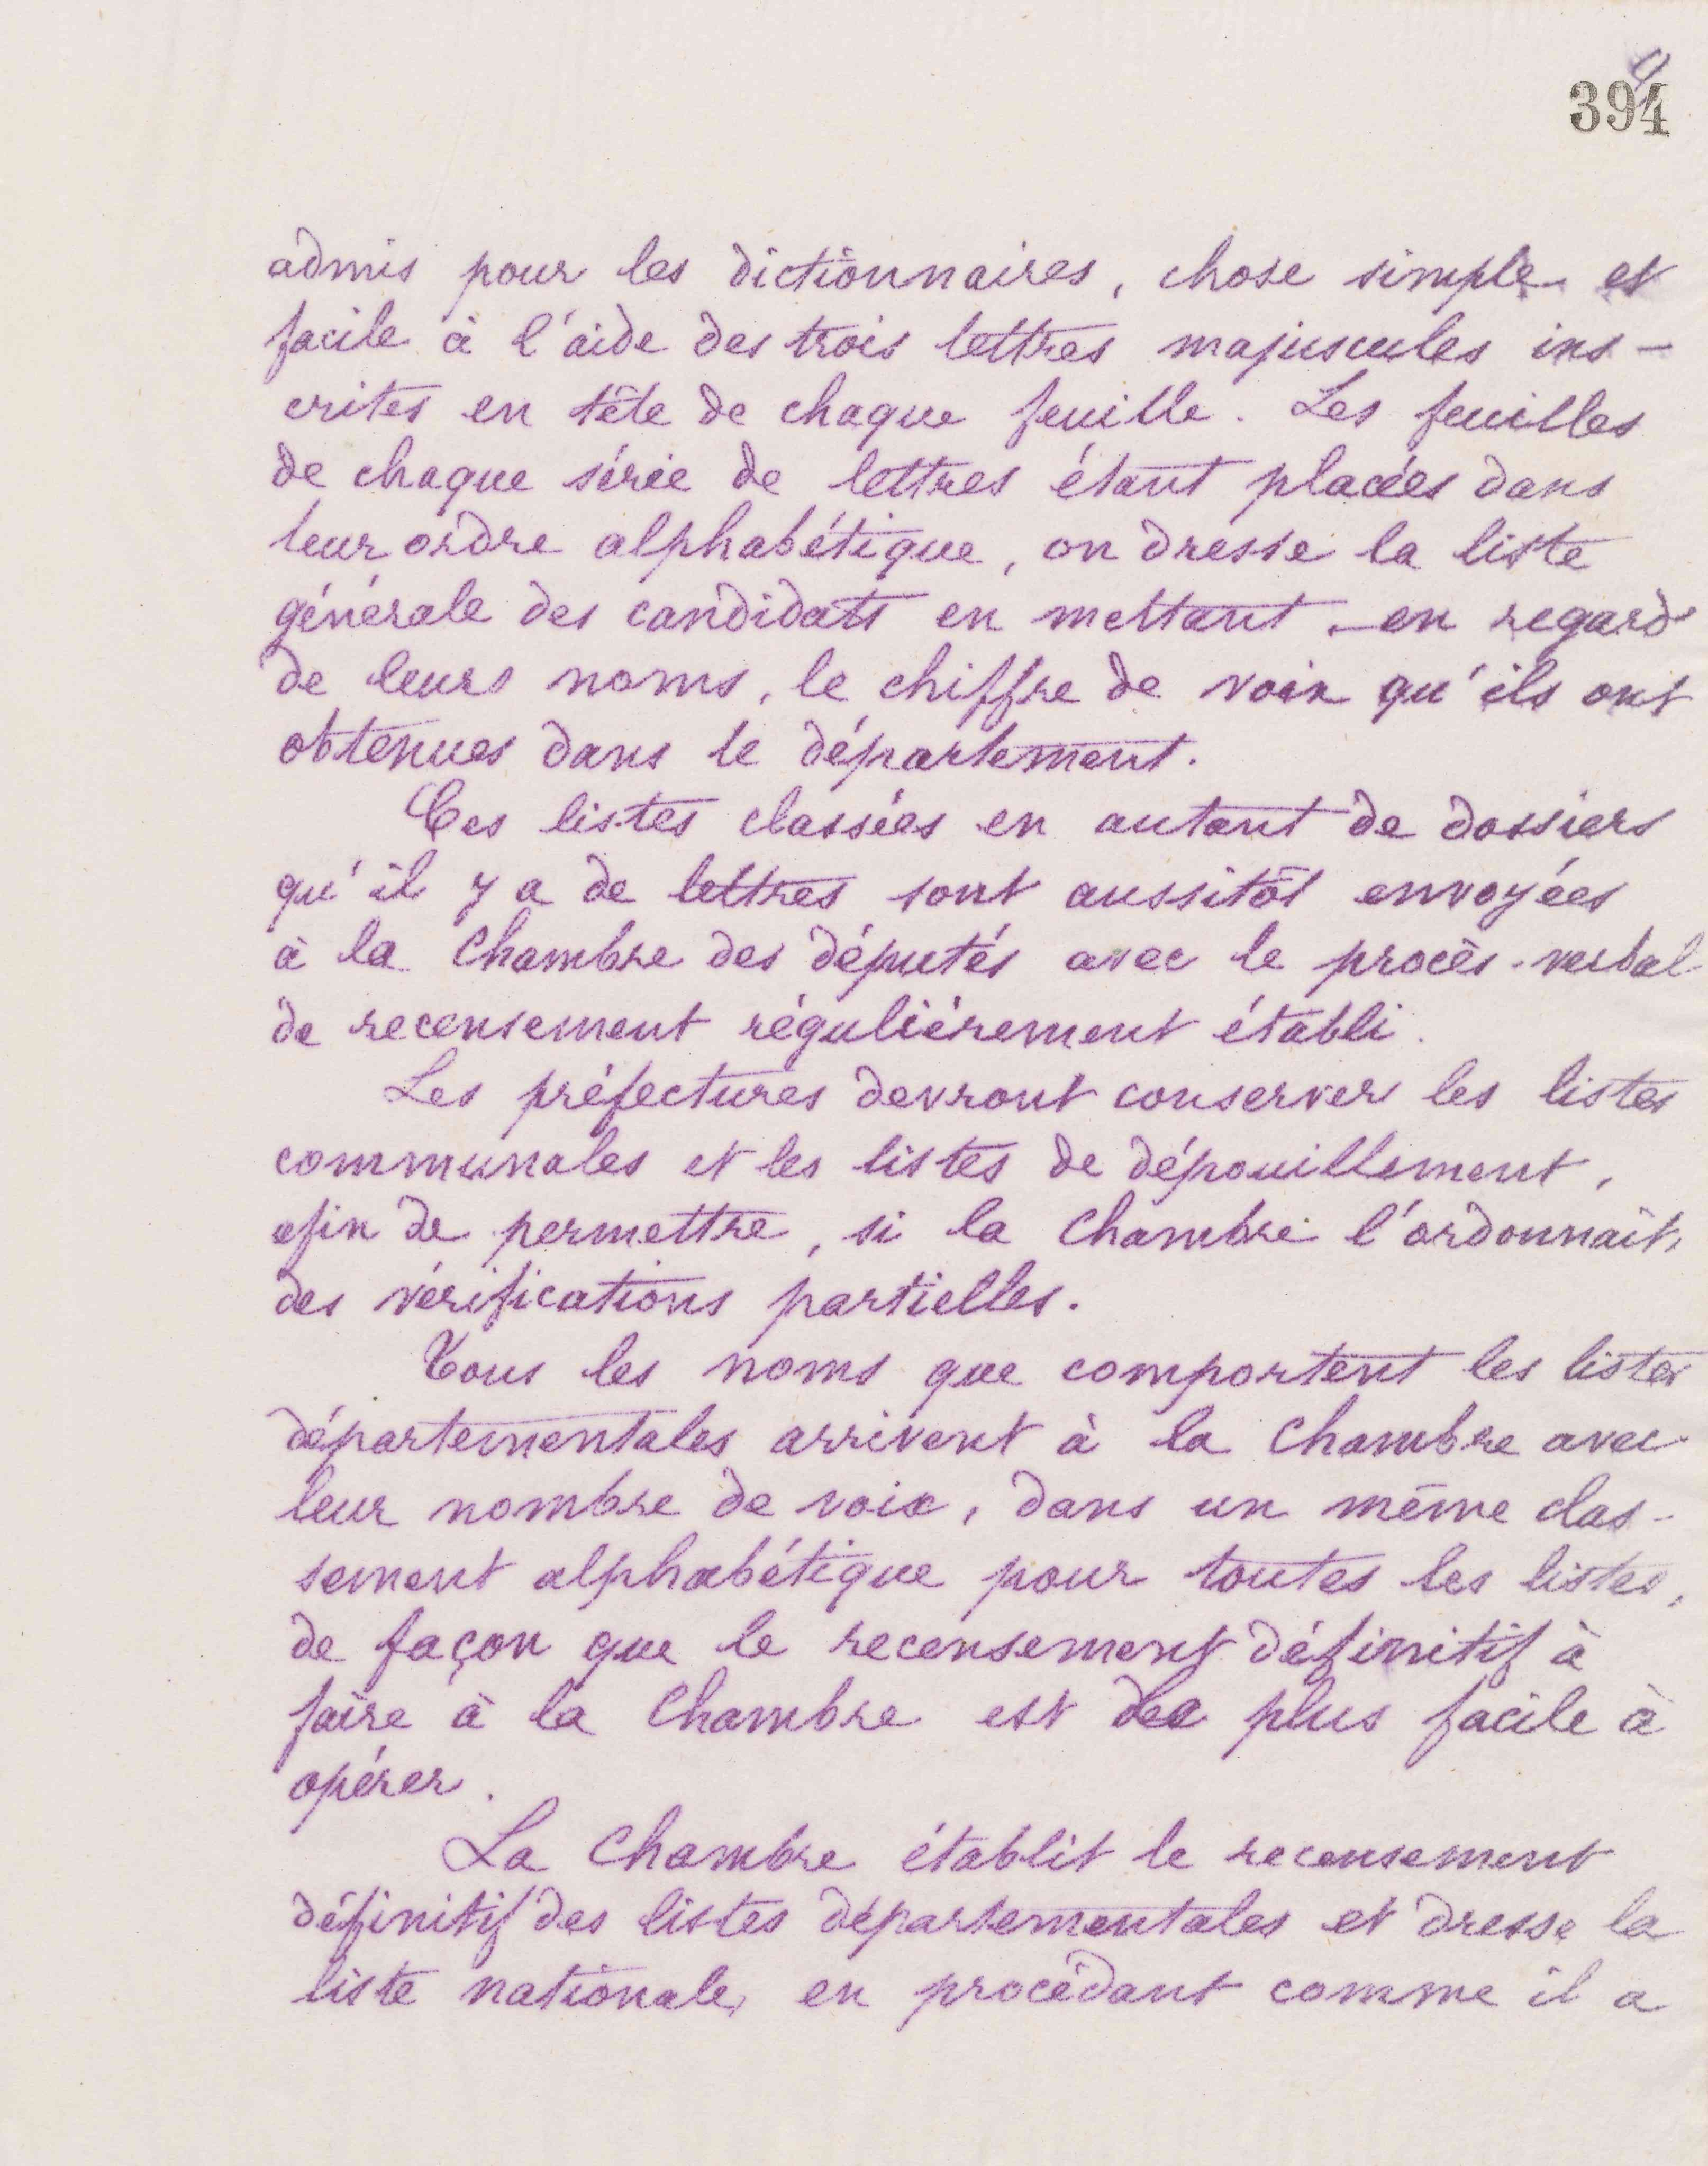 9
394
admis pour les dictionnaires, chose simple et
facile à l'aide des trois lettres majuscules ins-
crites en tête de chaque feuille. Les feuilles
de chaque série de lettres étant placées dans
leur ordre alphabétique, on dresse la liste
générale des candidats en mettant, en regard
de leurs noms, le chiffre de voix qu'ils ont
obtenues dans le département.
Ces listes classées en autant de dossiers
qu'il y a de lettres sont aussitôt envoyées
à la Chambre des députés avec le procès-verbal
de recensement régulièrement établi.
Les préfectures devront conserver les listes
communales et les listes de dépouillement,
afin de permettre, si la Chambre l'ordonnait,
des vérifications partielles.
Tous les noms que comportent les listes
départementales arrivent à la Chambre avec
leur nombre de voix, dans un même clas-
sement alphabétique pour toutes les listes,
de façon que le recensement définitif à
faire à la Chambre est des plus facile à
opérer.
La Chambre établit le recensement
définitif des listes départementales et dresse la
liste nationale, en procédant comme il a